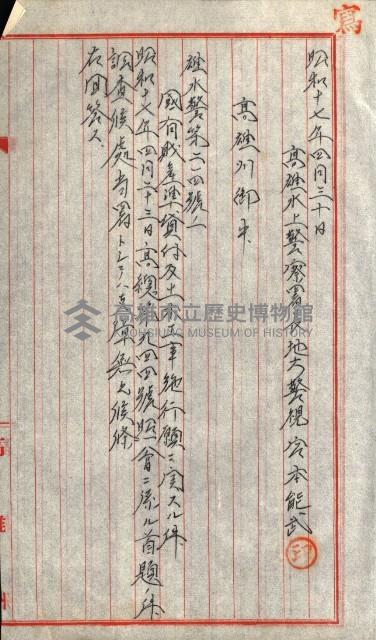 寫
昭和十七年四月三十日
高雄水上警察署長地方警視 宮本能武
印
高雄州御中
雄水警第二一四號ノ一
國有財產準貸付及土工事施行願ニ関スル件
昭和十七年四月二十三日高總第九四四號照會ニ係ル首題ノ件
調查候處當署トシテハ支障無之候條
右回答ス
高雄市立歷史博物館
KAOHSIUNG MUSEUM OF HISTORY
高雄州